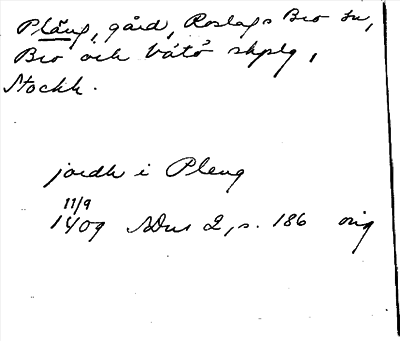 Pläng, gård, Roslags Bro sn,
Bro och Vätö skplg,
Stockh.
jordh i Pleng
11/9
1409 SDns 2, s. 186 orig